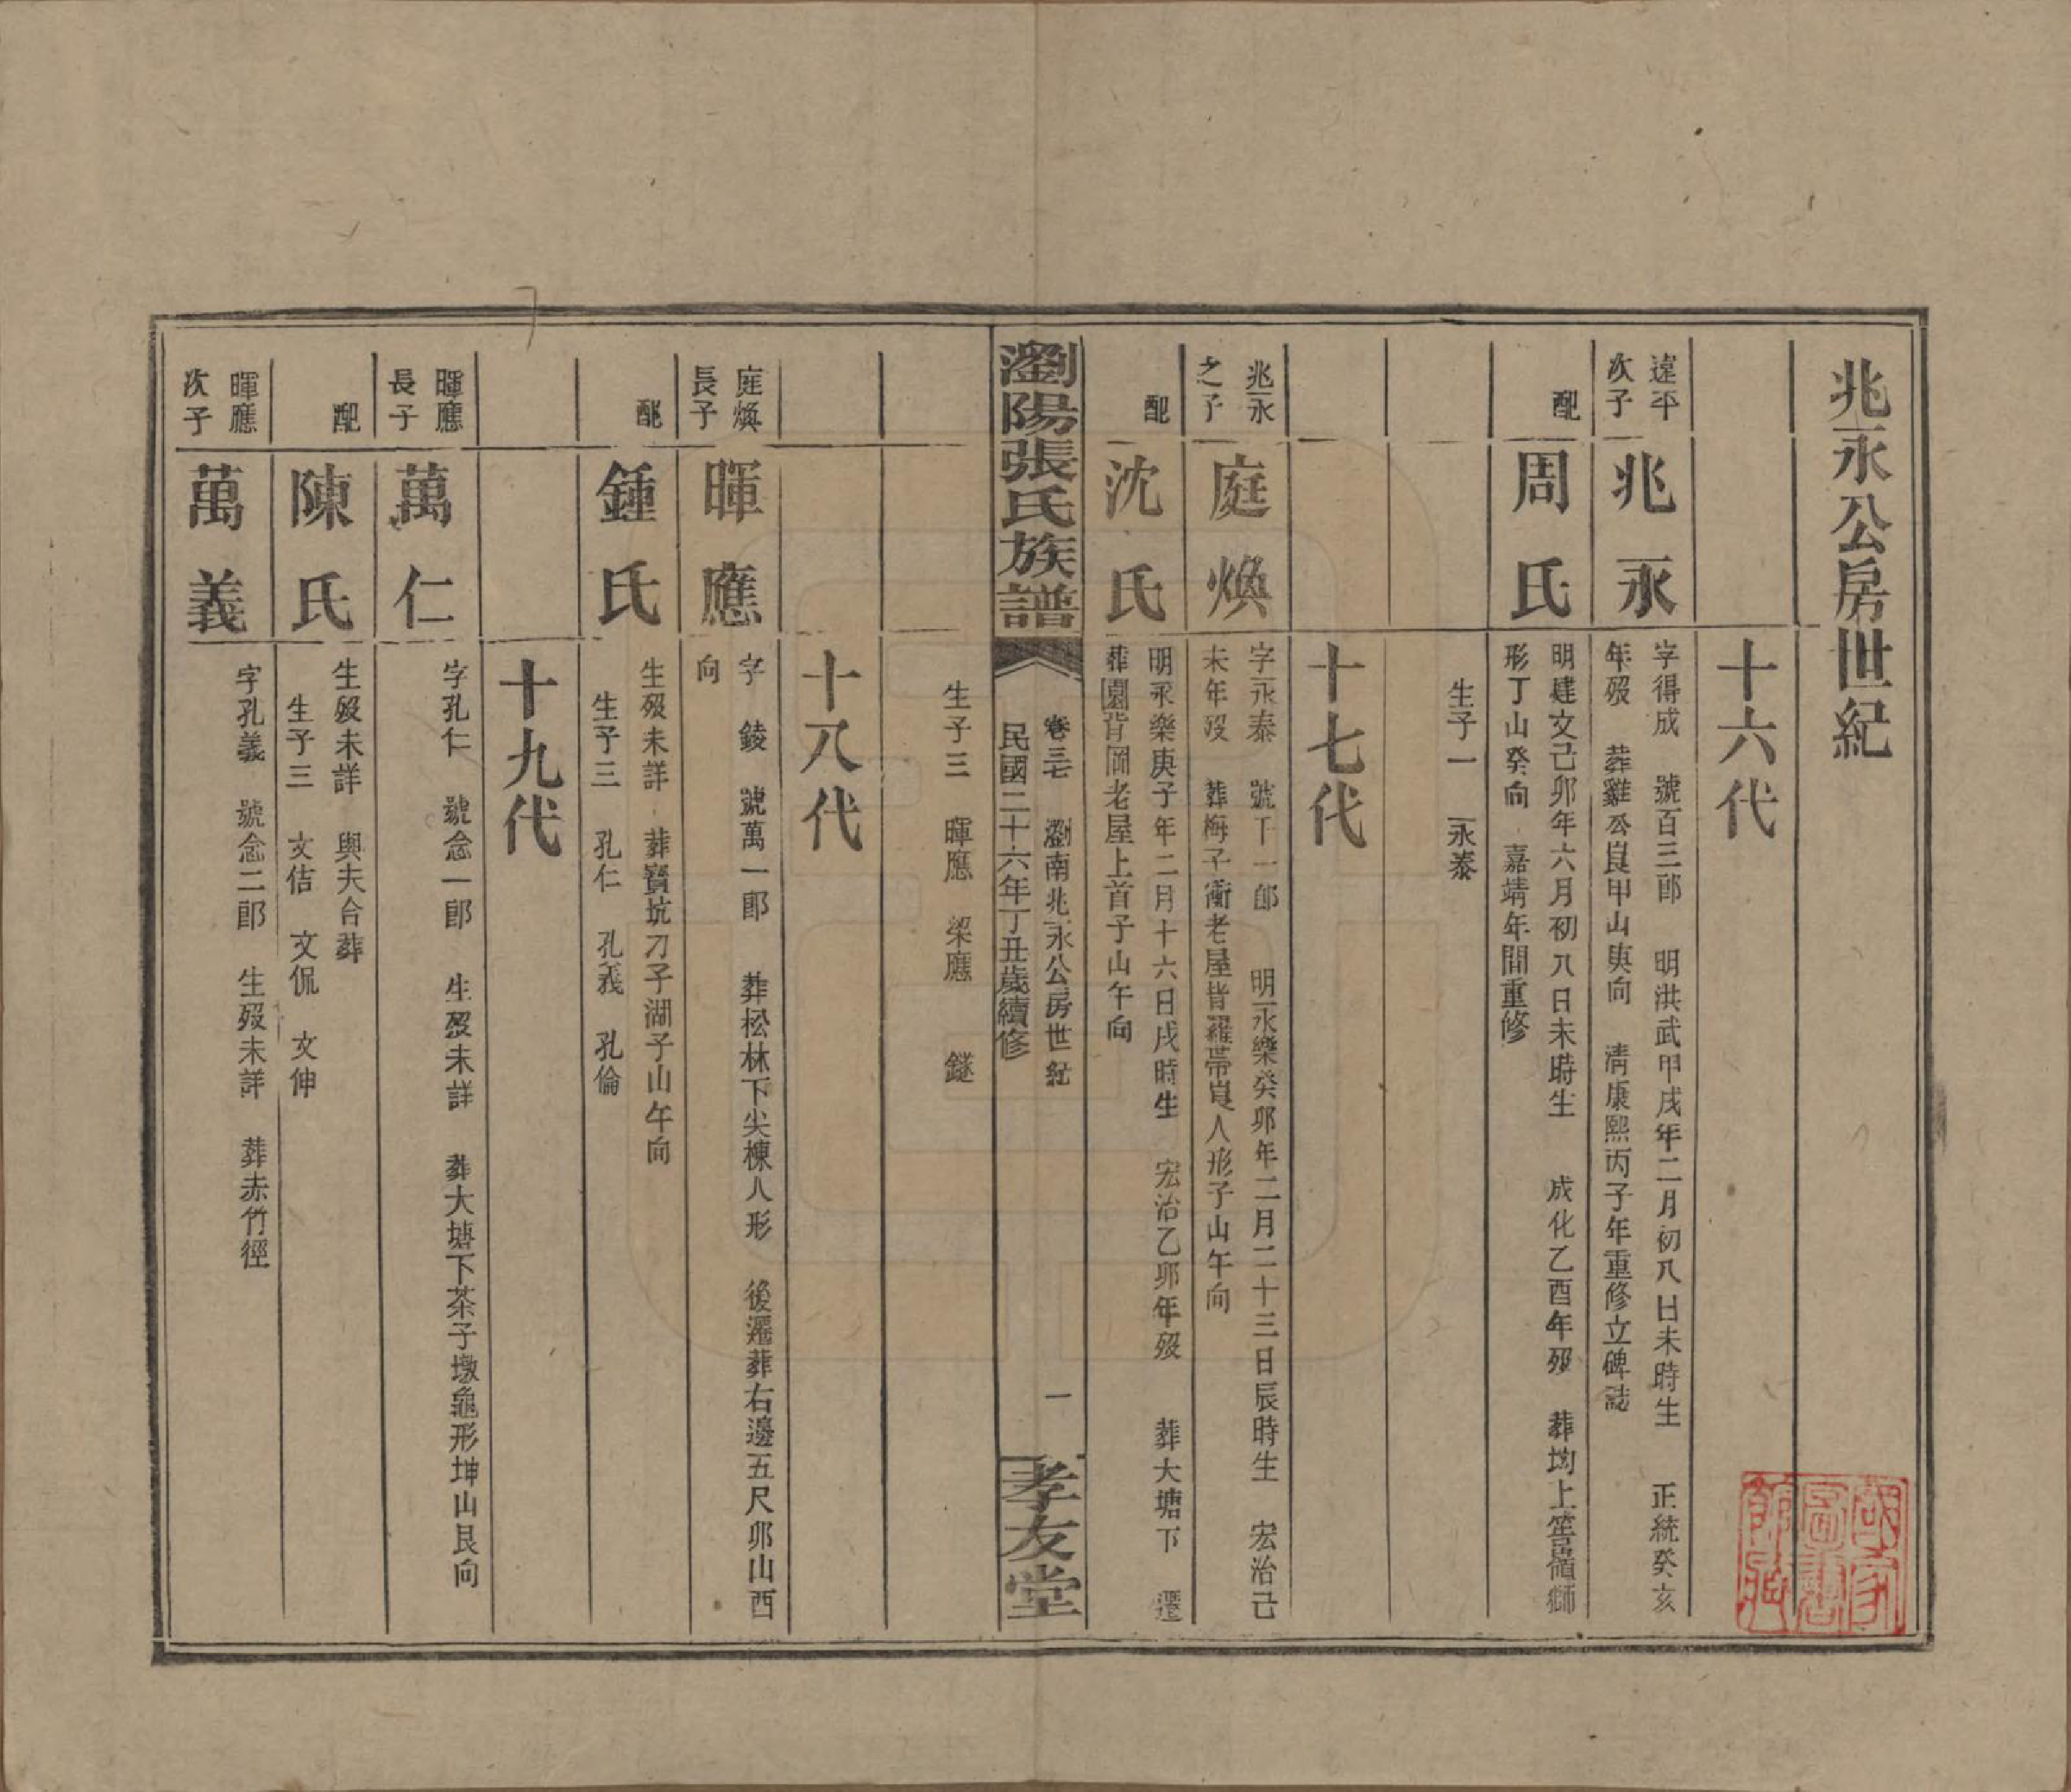 兆永公房世紀
十六代
達平次子
兆永
字得成　號百三郎　明洪武甲戌年二月初八日未時生　正統癸亥
年歿　葬雞公良甲山庚向　清康熙丙子年重修立碑誌
配
周氏
明建文己卯年六月初八日未時生　成化乙酉年歿　葬坳上
形丁山癸向　嘉靖年間重修
生子一　永泰
十七代
兆永之子
庭煥
字永泰　號千一郎　明永樂癸卯年二月二十三日辰時生　宏治己
未年歿　葬梅子衝老屋背羅帶良人形子山午向
配
沈氏
明永樂庚子年二月十六日戌時生　宏治乙卯年歿　葬大塘下　遷
葬園背岡老屋上首子山午向
瀏陽張氏族譜
卷三七　瀏南兆永公房世紀　一
民國二十六年丁丑歲續修
孝友堂
生子三　暉應　梁應　鐩
十八代
庭煥長子
暉應
字　錂　號萬一郎　葬松林下尖棟人形　後遷葬右邊五尺卯山酉
向
配
鍾氏
生歿未詳　葬寶坑刀子湖子山午向
生子三　孔仁　孔義　孔倫
十九代
暉應長子
萬仁
字孔仁　號念一郎　生歿未詳　葬大塘下茶子墩龜形坤山艮向
配
陳氏
生歿未詳　與夫合葬
生子三　文佶　文侃　文伸
暉應次子
萬義
字孔義　號念二郎　生歿未詳　葬赤竹徑
國家圖書館藏